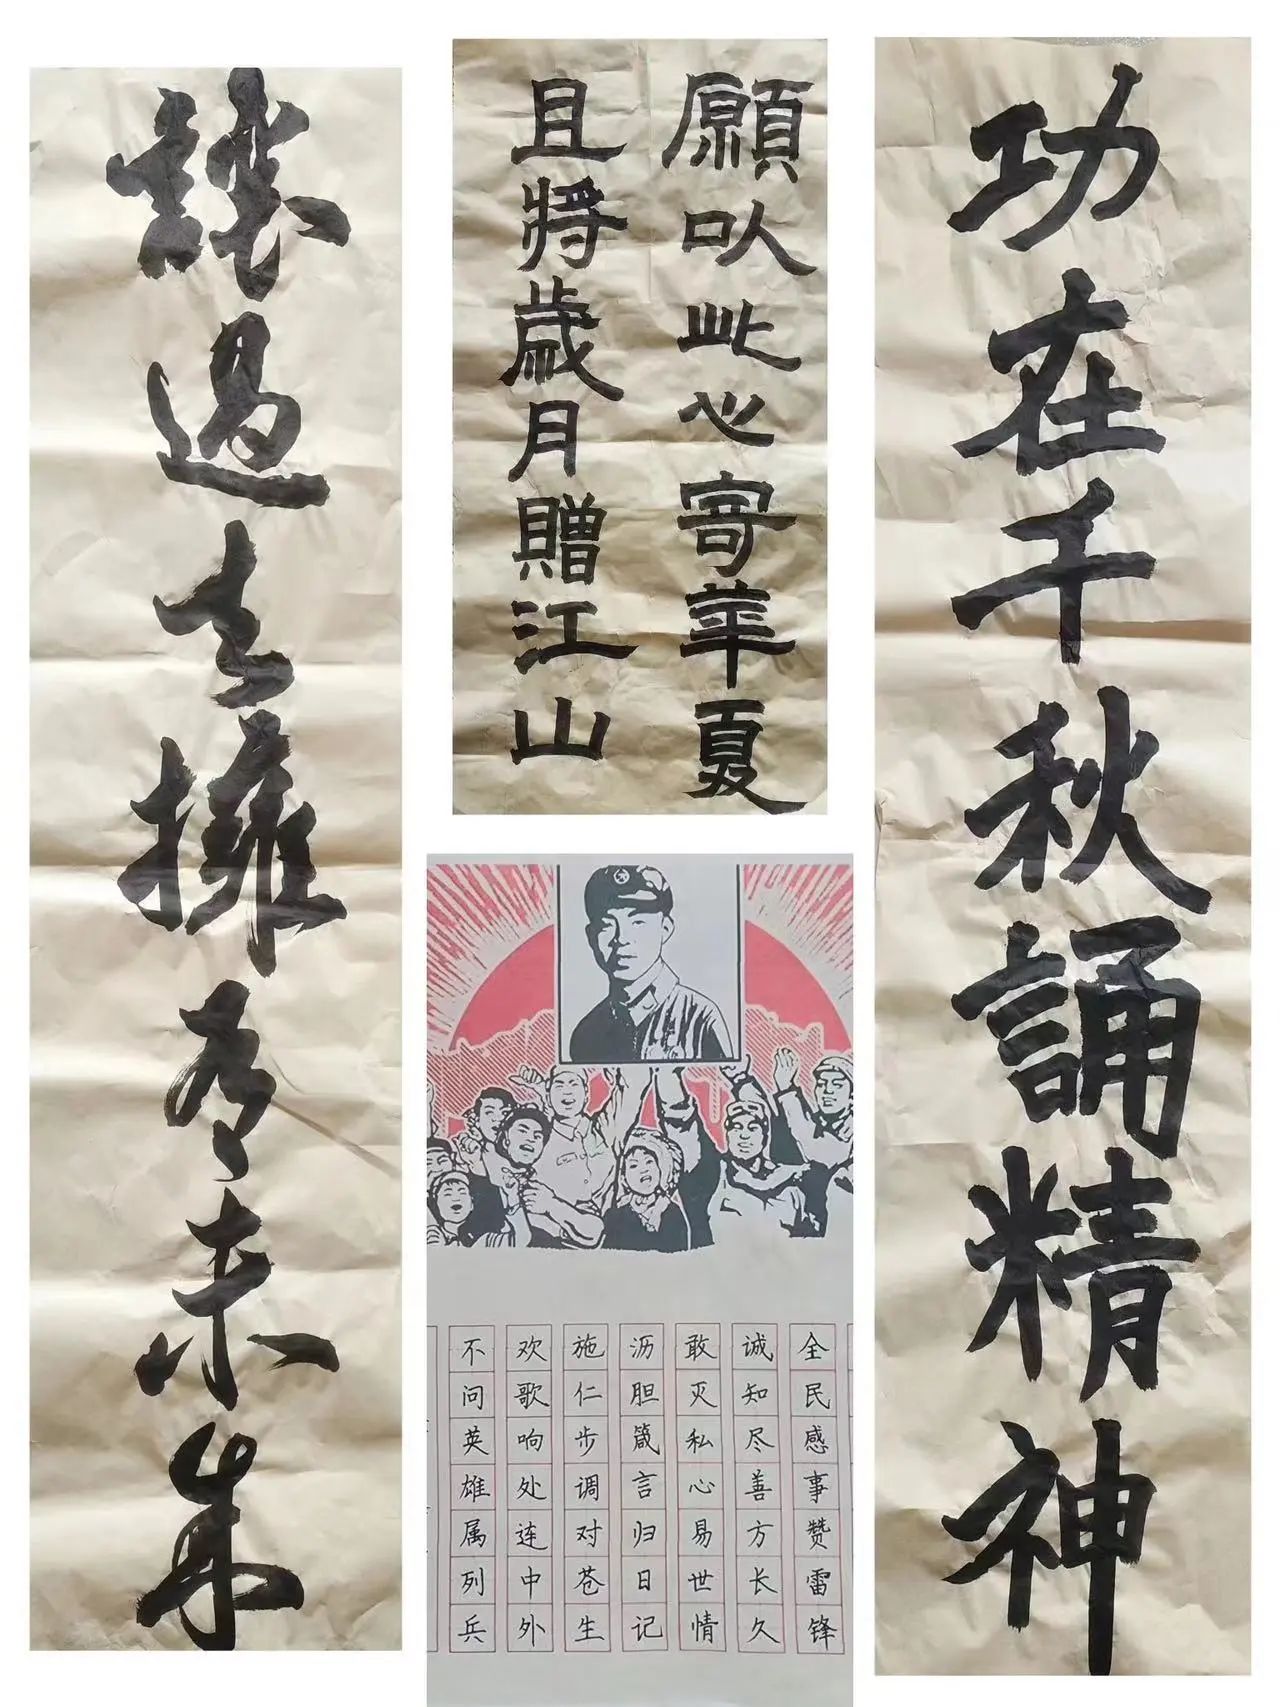 功在千秋誦精神
願以此心寄華夏
且將歲月贈江山
全民感事赞雷锋
诚知尽善方长久
敢灭私心易世情
沥胆箴言归日记
施仁步调对苍生
欢歌响处连中外
不问英雄属列兵
讓過去擁有未来